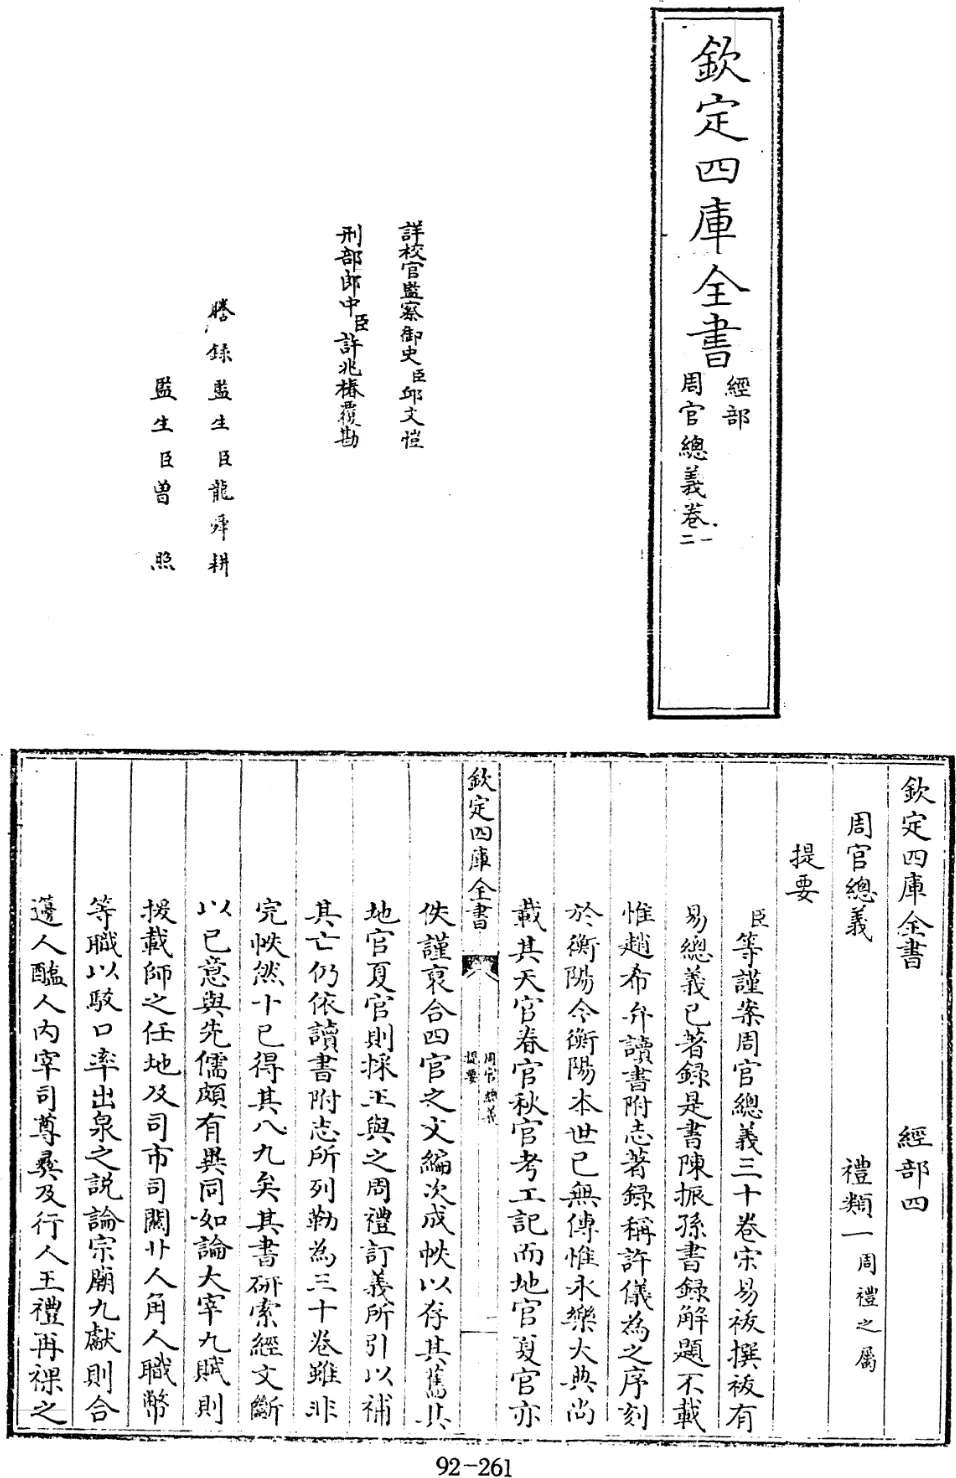 欽定四庫全書
經部
周官總義卷一二
詳校官監察御史臣邱文愷
刑部郎中臣許兆椿覆勘
謄録監生臣龍舜耕
監生臣曽照
欽定四庫全書 經部四
周官總義 禮類一周禮之屬
提要
臣等謹案周官總義三十卷宋易祓撰祓有
易總義已著録是書陳振孫書録解題不載
惟趙希弁讀書附志著録稱許儀為之序刻
於衡陽今衡陽本世已無傳惟永樂大典尚
載其天官春官秋官考工記而地官夏官亦
欽定四庫全書
周官總義
提要
佚謹裒合四官之文編次成帙以存其舊其
地官夏官則採王與之周禮訂義所引以補
其亡仍依讀書附志所列勒為三十卷雖非
完帙然十已得其八九矣其書研索經文斷
以已意與先儒頗有異同如論大宰九賦則
援載師之任地及司市司關廾人角人職幣
等職以駁口率出泉之説論宗廟九獻則合
籩人醢人内宰司尊彞及行人王禮再祼之
92-261